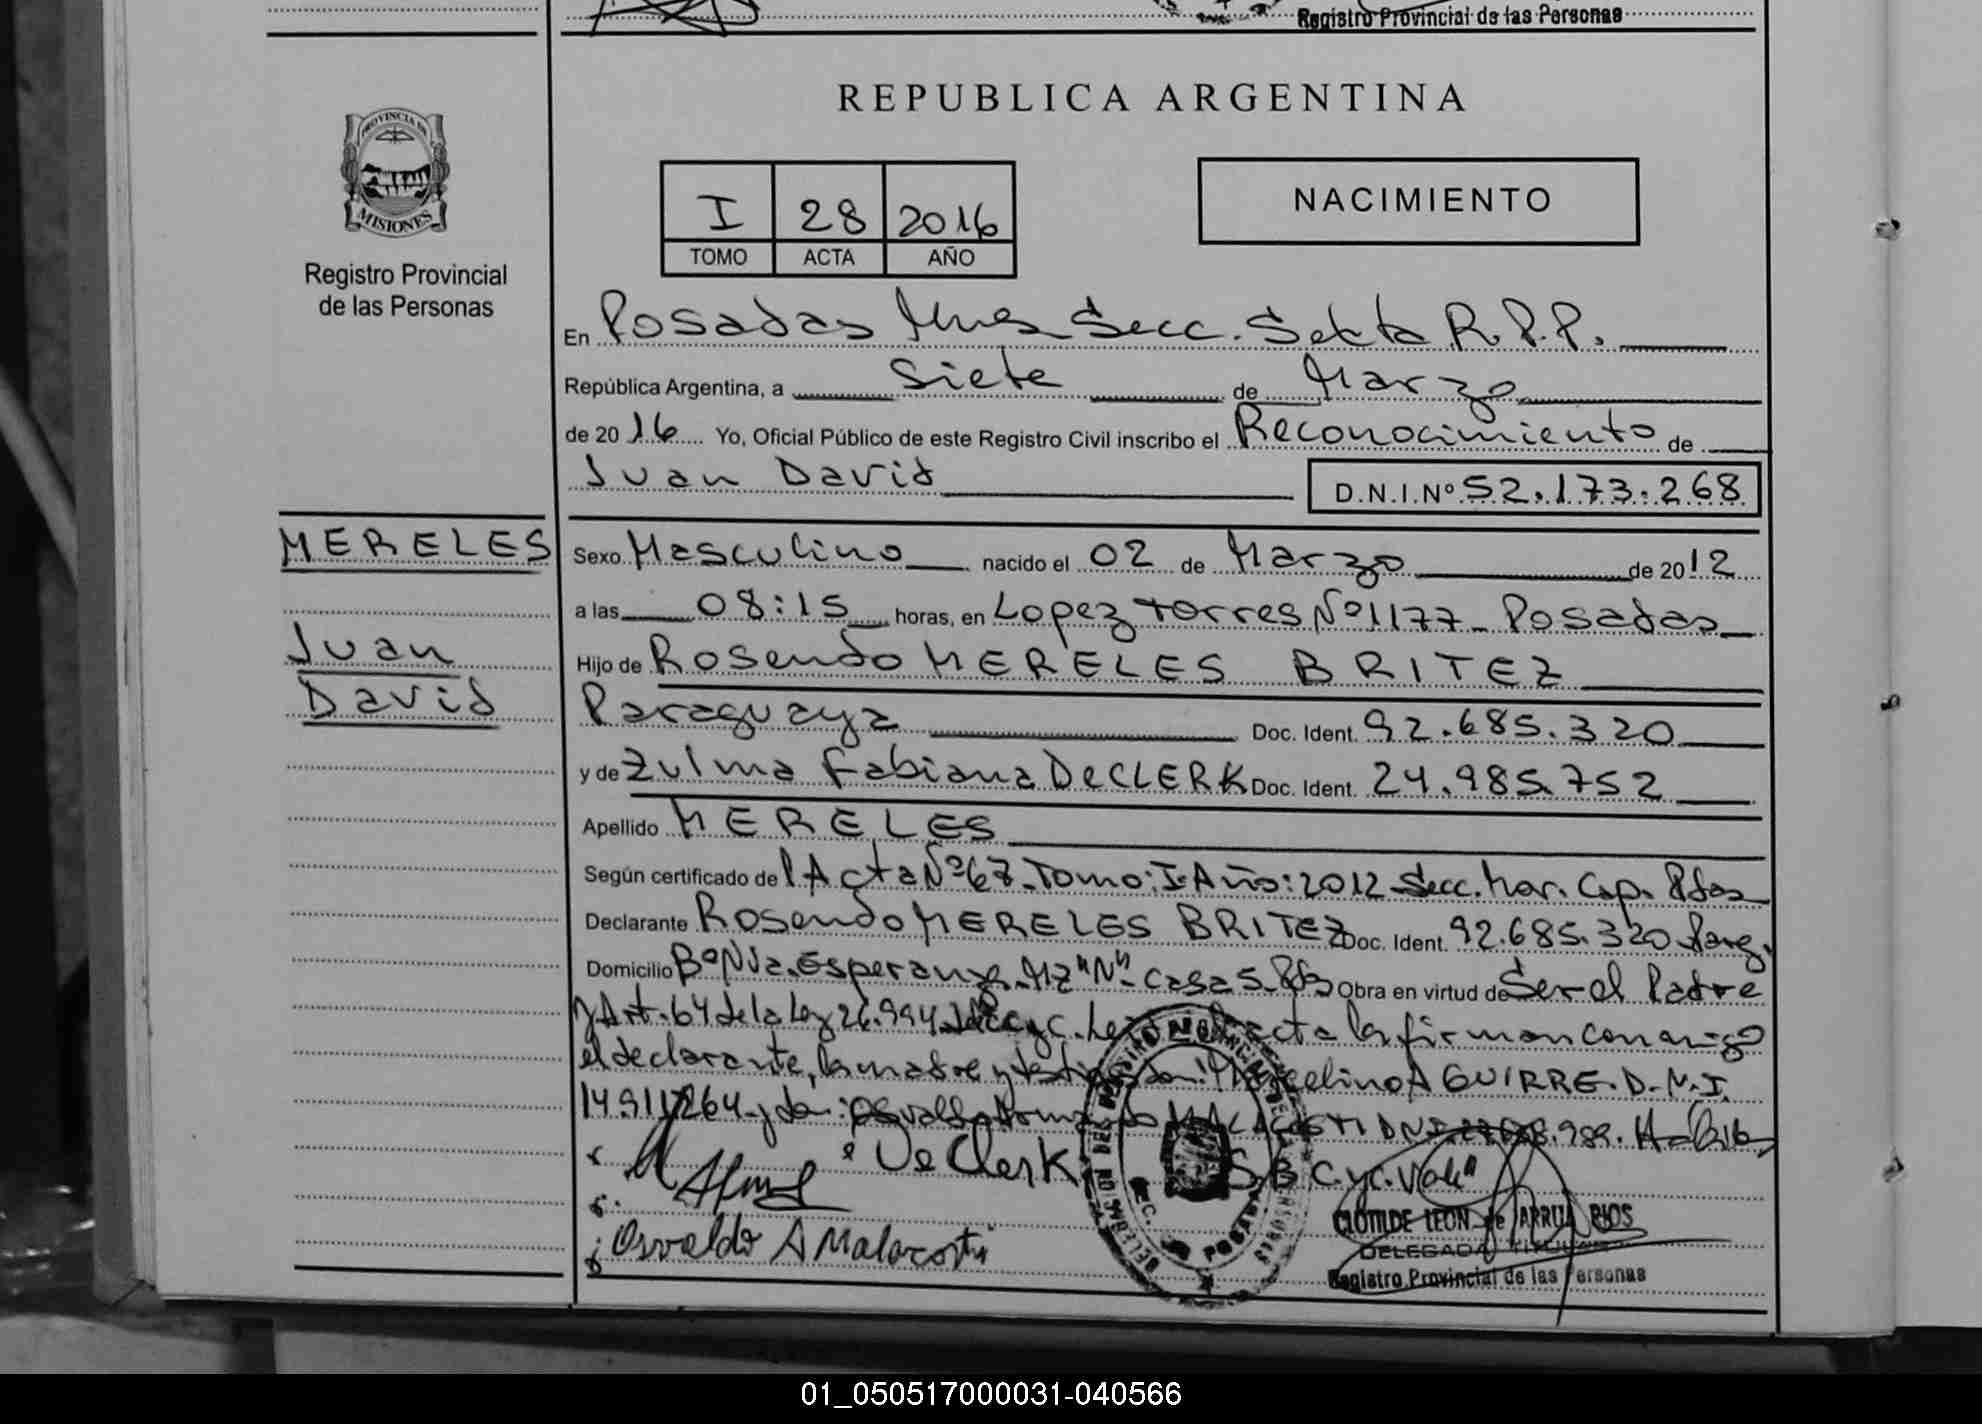 Registro Provincial de las Personas
REPUBLICA ARGENTINA
PROVINCIA DE
MISIONES
Registro Provincial
de las Personas
I 28 2016
TOMO ACTA AÑO
NACIMIENTO
En Posadas Mnes Secc. Sexta R.P.P.
República Argentina, a Siete de Marzo
de 2016 Yo, Oficial Público de este Registro Civil inscribo el Reconocimiento de
Juan David D.N.I.Nº 52.173.268
MERELES
Juan
David
Sexo Masculino nacido el 02 de Marzo de 2012
a las 08:15 horas, en Lopez Torres Nº 1177 - Posadas
Hijo de Rosendo MERELES BRITEZ
Paraguaya Doc. Ident. 92.685.320
y de Zulma Fabiana DeCLERK Doc. Ident. 24.985.752
Apellido MERELES
Según certificado de l Acta Nº 67 - Tomo: I - Año: 2012 - Secc. Cap. Pdas
Declarante Rosendo MERELES BRITEZ Doc. Ident. 92.685.320 Parag.
Domicilio Bº Nva. Esperanza - Mz "N" - Casa 5 - Pdas Obra en virtud de Ser el Padre
y Art. 64 de la Ley 26.994 acta la firman conmigo
el declarante, la madre y testigos don: Marcelino AGUIRRE. D.N.I.
14.911.264 y don: Osvaldo Armando MALACOSTI DNI .989.
De Clerk S/B C.yc. Vale"
CLOTILDE LEON de ARRUA RIOS
Osvaldo A Malacosti
DELEGADA TITULAR
Registro Provincial de las Personas
01_050517000031-040566